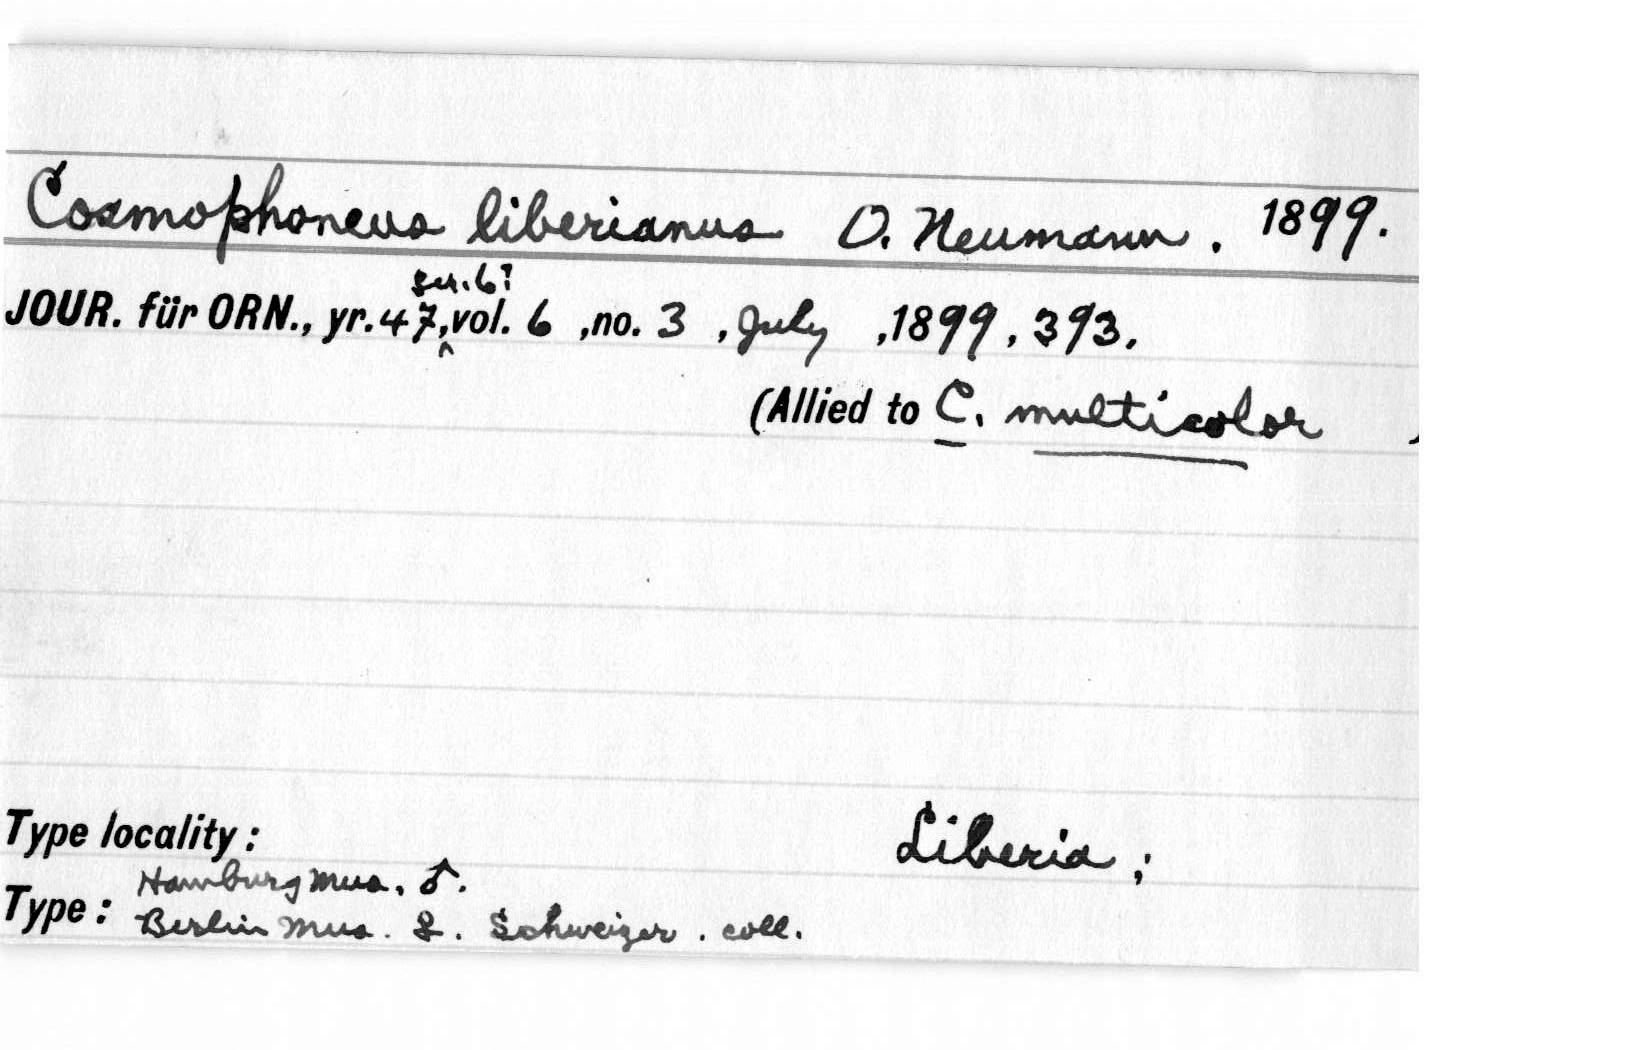 Cosmophoneus liberianus O. Neumann. 1899.
ser. 6?
JOUR. für ORN., yr. 47, vol. 6 , no. 3 , July , 1899 , 393.
(Allied to C. multicolor )
Type locality: Liberia ;
Hamburg Mus. ♂.
Type: Berlin Mus. Schweizer. coll.